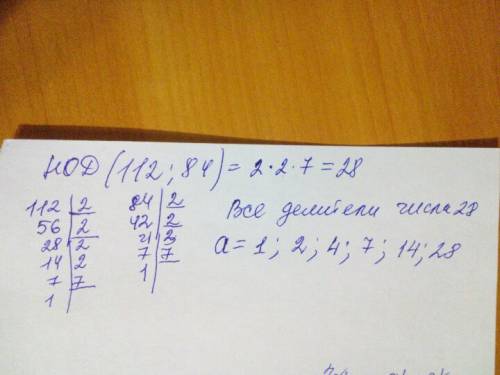 НОД (112; 84) = 2 · 2 · 7 = 28
112 | 2
56 | 2
28 | 2
14 | 2
7 | 7
1
84 | 2
42 | 2
21 | 3
7 | 7
1
Все делители числа 28
a = 1; 2; 4; 7; 14; 28